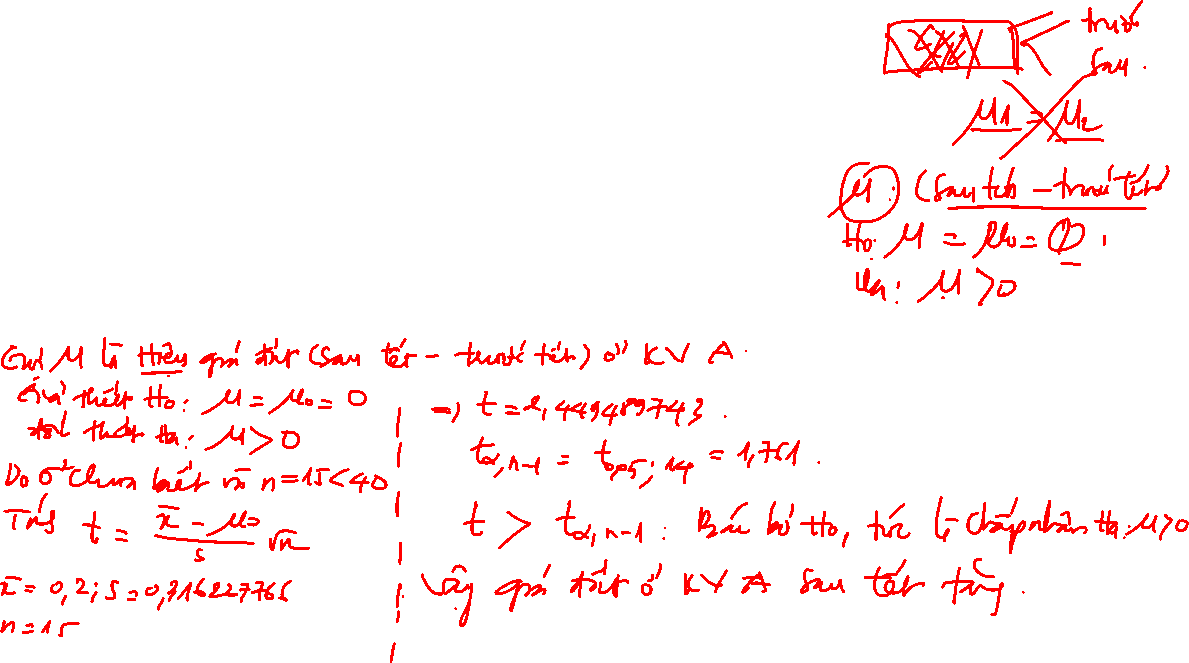 trước
sau.
μ1 = μ2
μ: (sau tết - trước tết)
H0: μ = μ0 = 0
Ha: μ > 0
Gọi μ là Hiệu giá đất (sau tết - trước tết) ở KV A.
Giả thiết H0: μ = μ0 = 0
đối thiết Ha: μ > 0
Do σ² chưa biết và n = 15 < 40
Tính t = (x̄ - μ0)/s √n
x̄ = 0,2; s = 0,316227766
n = 15
=> t = 2,449489743.
tα,n-1 = t0,05; 14 = 1,761.
t > tα,n-1: Bác bỏ H0, tức là chấp nhận Ha: μ > 0
Vậy giá đất ở KV A sau tết tăng.